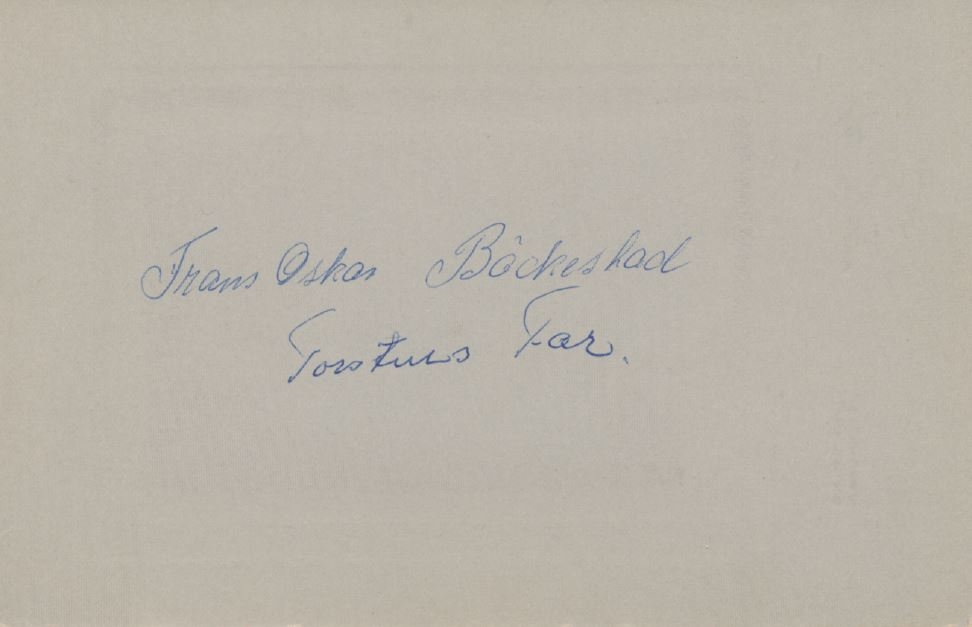 Frans Oskar Böckeskad
Torstens Far.